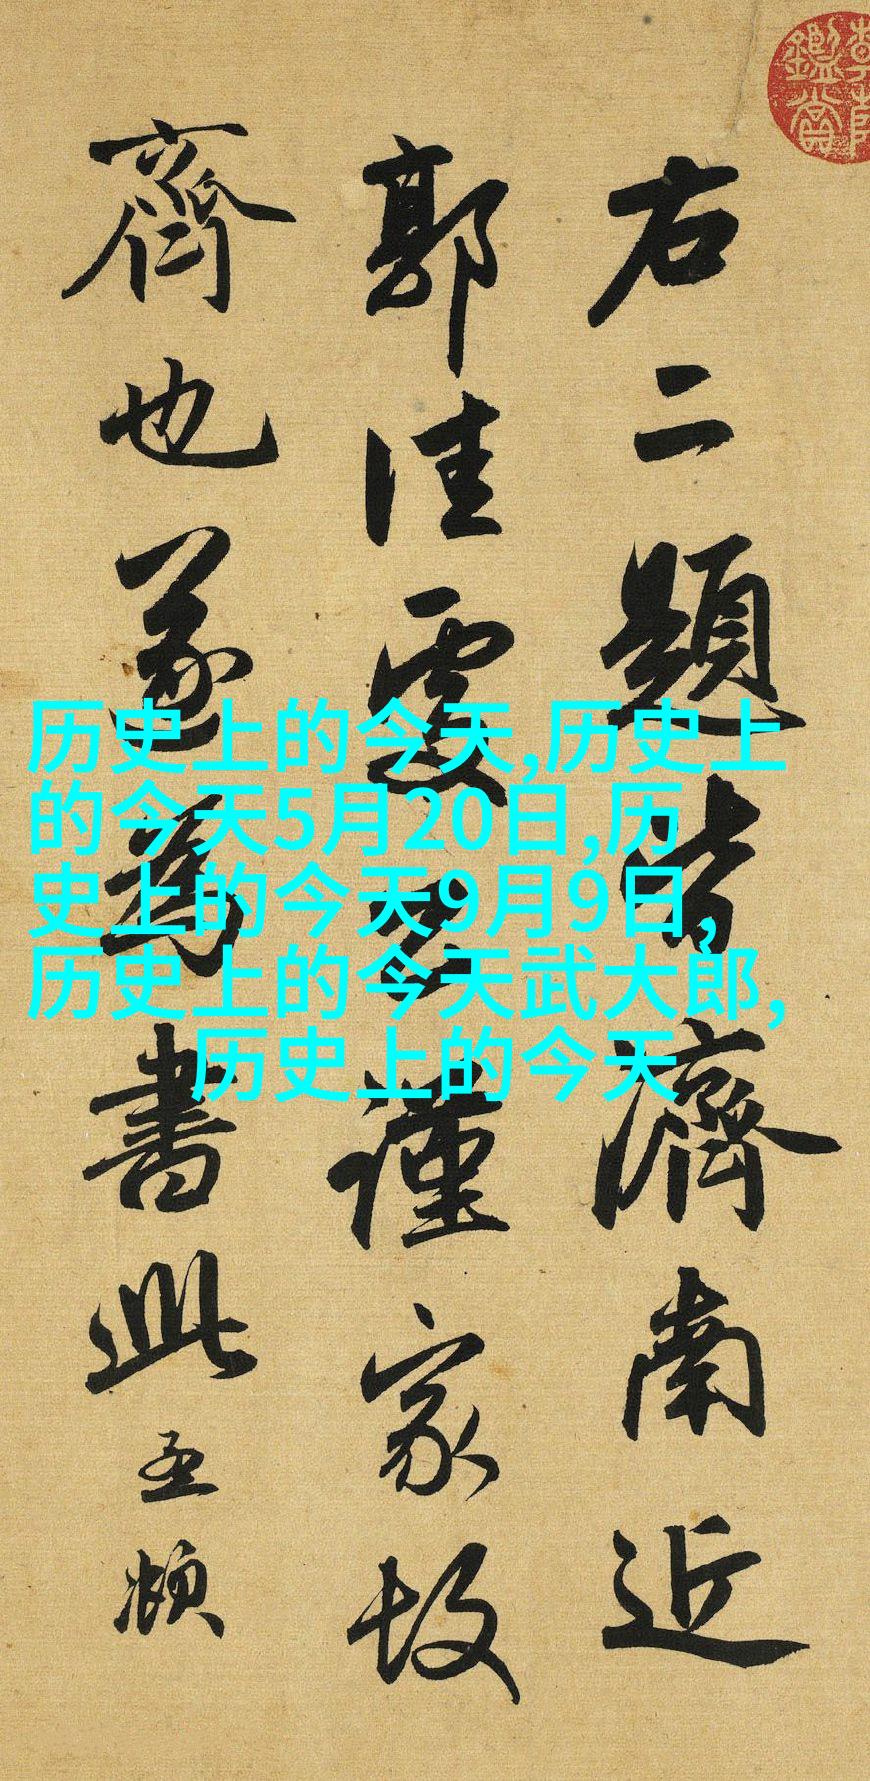 右二題皆濟南近
郭佳處公謹家故
齊也遂為書此孟頫
历史上的今天,历史上
的今天5月20日,历
史上的今天9月9日,
历史上的今天武大郎,
历史上的今天